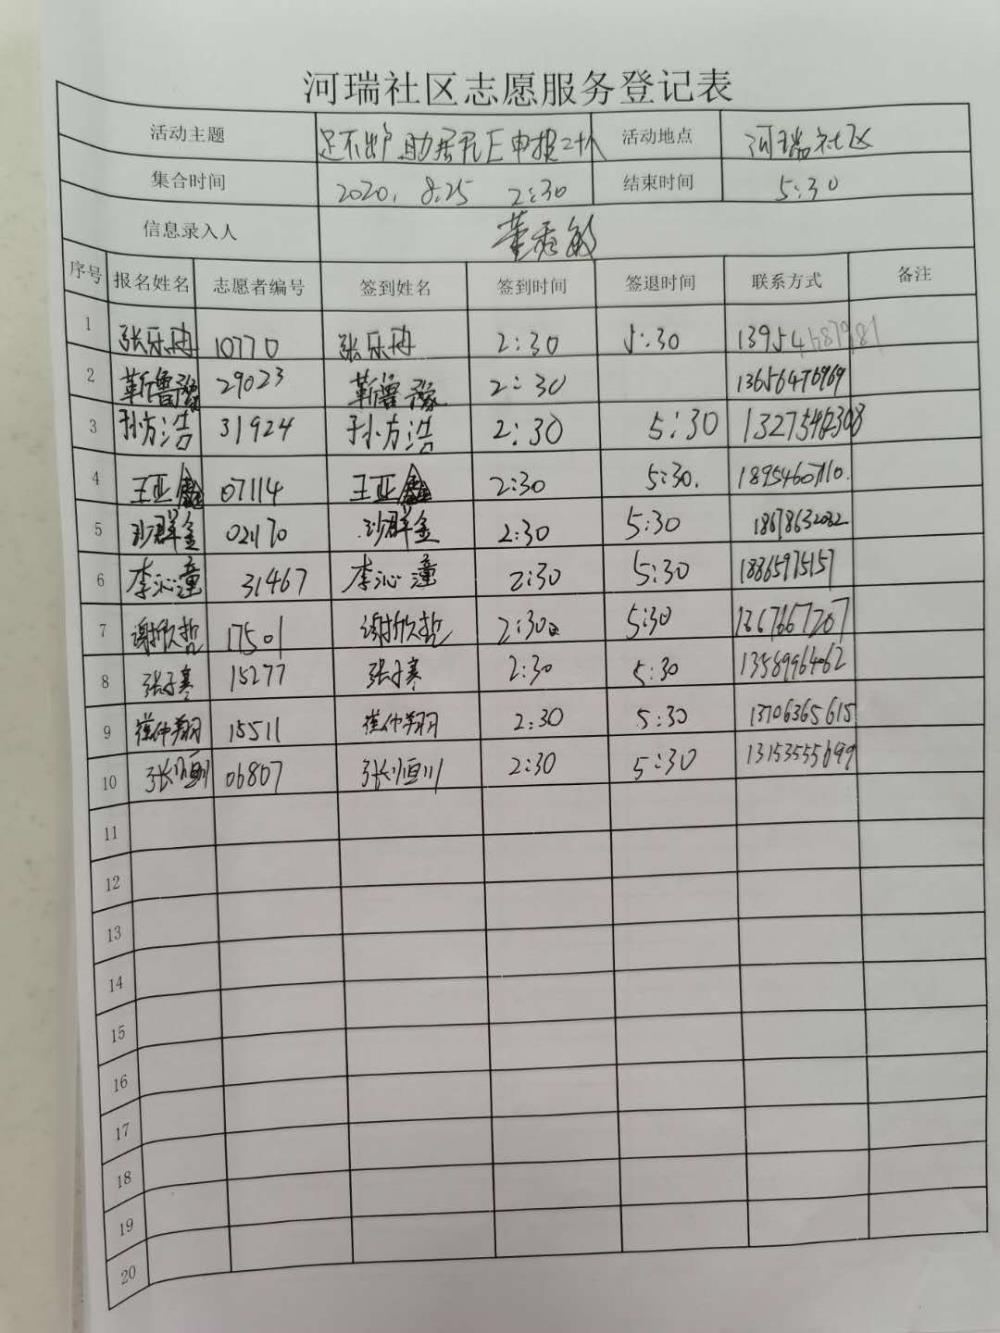 河瑞社区志愿服务登记表
活动主题 足不出户 助居民 申报 活动地点 河瑞社区
集合时间 2020. 8.25 2:30 结束时间 5:30
信息录入人 董秀敏
序号 报名姓名 志愿者编号 签到姓名 签到时间 签退时间 联系方式 备注
1 张乐冉 10770 张乐冉 2:30 5:30 13954687981
2 靳鲁豫 29023 靳鲁豫 2:30 13656476969
3 孙方浩 31924 孙方浩 2:30 5:30
4 王亚鑫 07114 王亚鑫 2:30 5:30. 18954607110.
5 群金 02170 群金 2:30 5:30 18678632082
6 李沁潼 31467 李沁潼 2:30 5:30 18865975157
7 谢欣哲 17501 谢欣哲 2:30 5:30
8 张子寒 15277 张子寒 2:30 5:30 13589964062
9 崔仲翔 15511 崔仲翔 2:30 5:30 13706365615
10 张恒川 06807 张恒川 2:30 5:30 13153555699
11
12
13
14
15
16
17
18
19
20